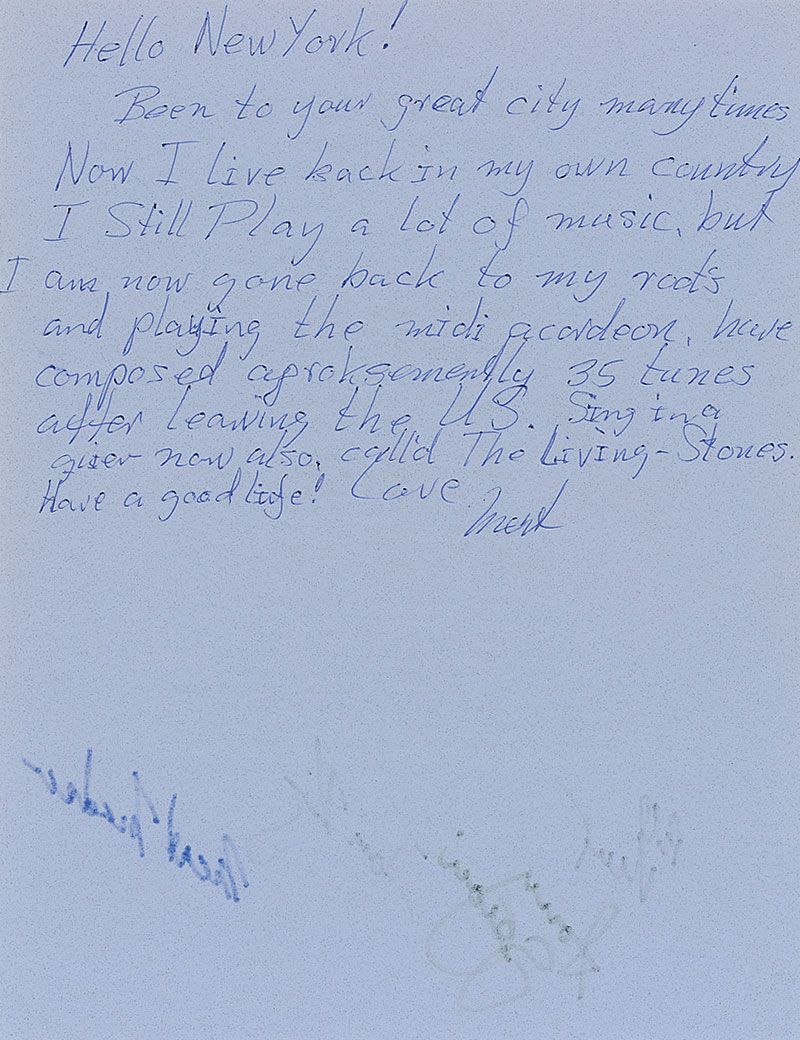 Hello New York!
Been to your great city many times
Now I live back in my own country
I Still Play a lot of music, but
I am now gone back to my roots
and playing the midi acordeon, have
composed aproksemently 35 tunes
after leaving the US. Sing in a
quier now also, call'd The Living-Stones.
Have a good life! Love